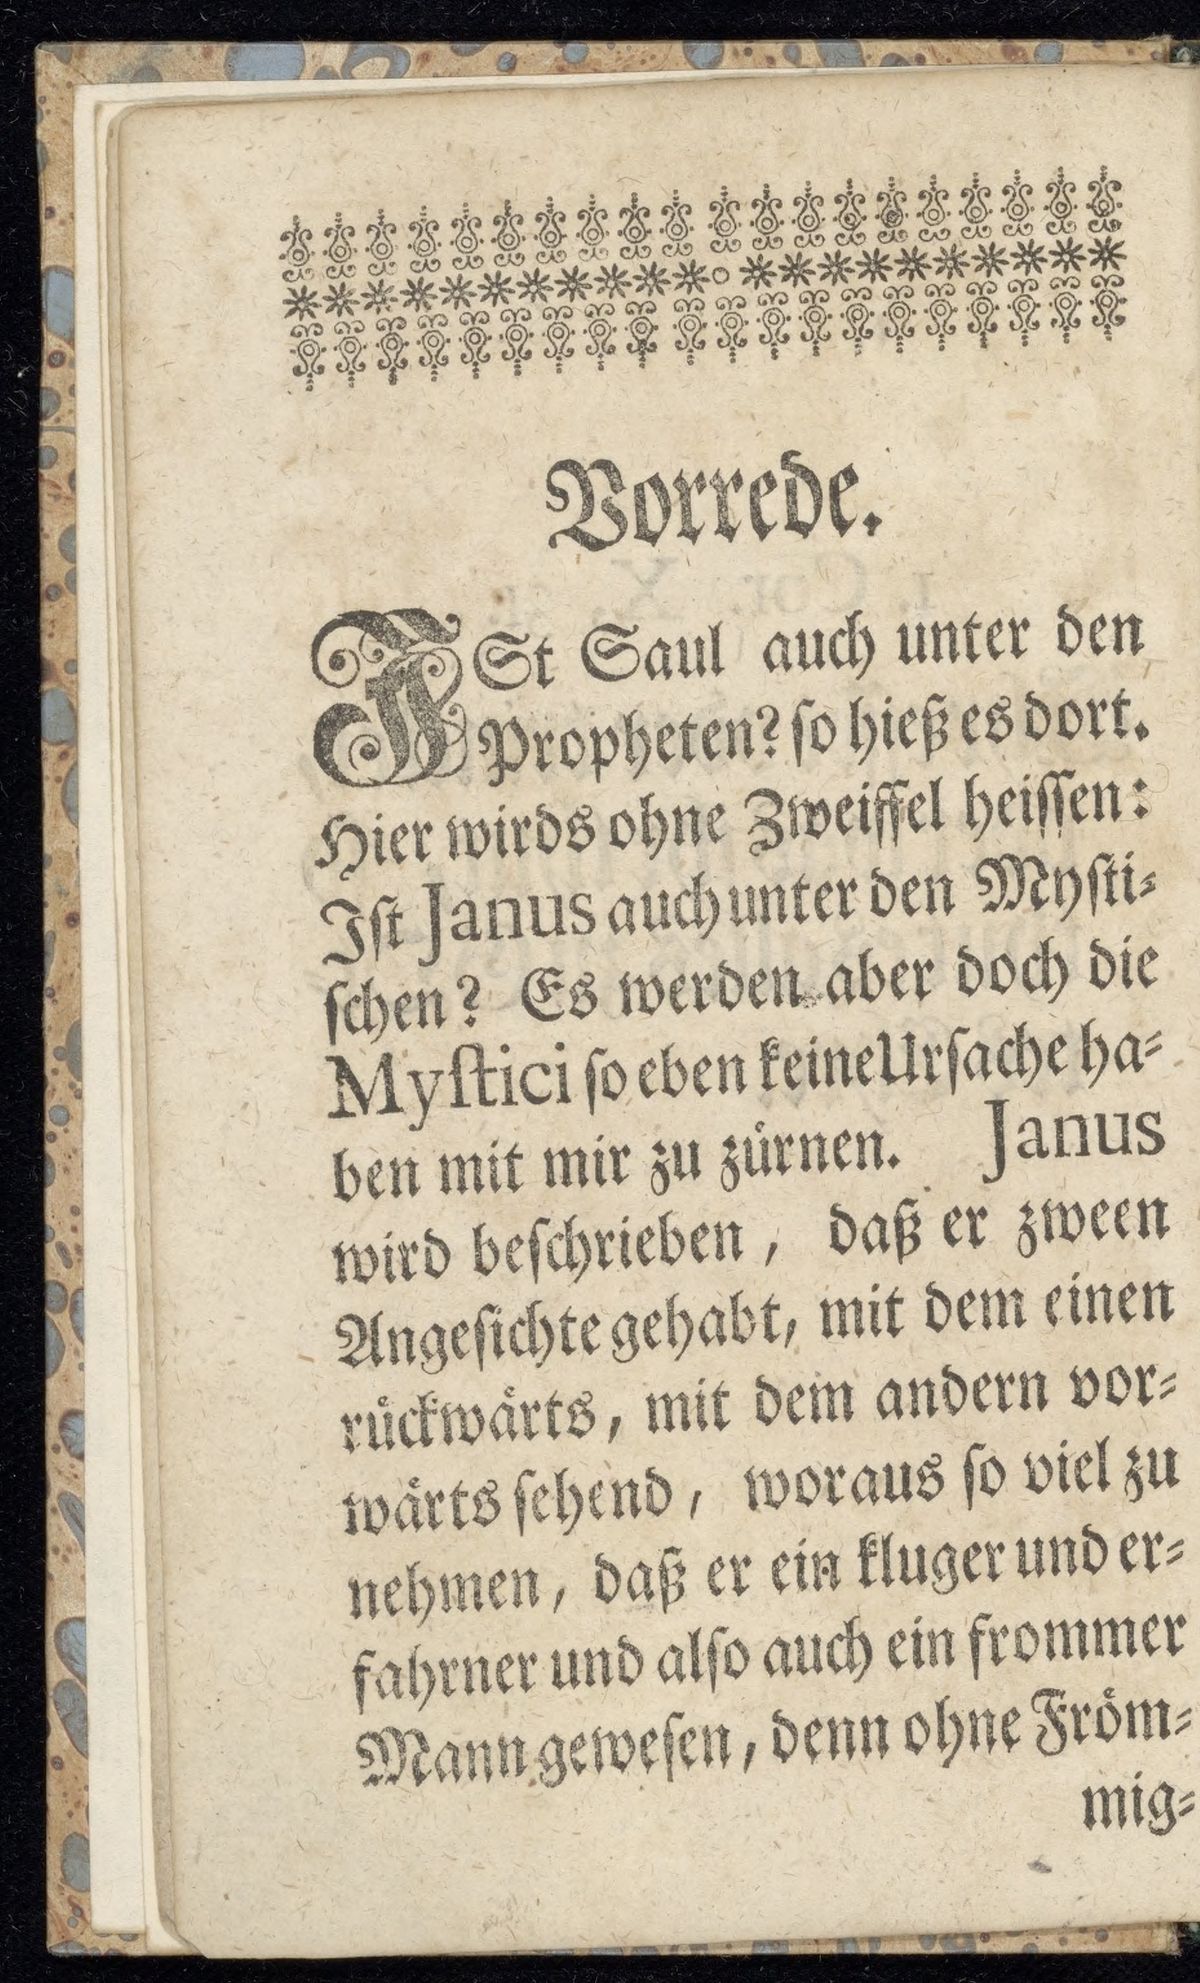 Vorrede.
ISt Saul auch unter den
Propheten? ſo hieß es dort.
Hier wirds ohne Zweiffel heiſſen:
Iſt Janus auch unter den Myſti-
ſchen? Es werden aber doch die
Myſtici ſo eben keine Urſache ha-
ben mit mir zu zürnen. Janus
wird beſchrieben, daß er zween
Angeſichte gehabt, mit dem einen
rückwärts, mit dem andern vor-
wärts ſehend, woraus ſo viel zu
nehmen, daß er ein kluger und er-
fahrner und alſo auch ein frommer
Mann geweſen, denn ohne Fröm-
mig-